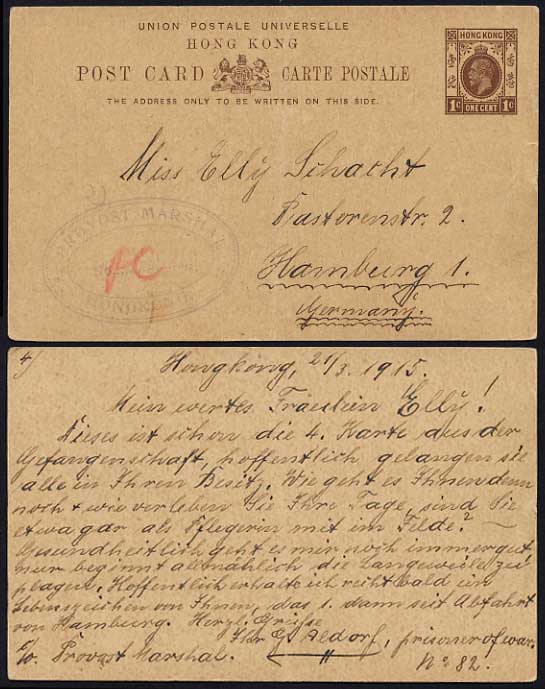 UNION POSTALE UNIVERSELLE
HONG KONG
POST CARD CARTE POSTALE
THE ADDRESS ONLY TO BE WRITTEN ON THIS SIDE.
HONG KONG
1C ONE CENT 1C
Miss Elly Schacht
Pastorenstr. 2.
Hamburg 1.
Germany.
PROVOST MARSHAL
HONGKONG
4)
Hongkong, 21/3. 1915.
Mein wertes Fräulein Elly!
Dieses ist schon die 4. Karte aus der
Gefangenschaft, hoffentlich gelangen sie
alle in Ihren Besitz. Wie geht es Ihnen denn
noch & wie verleben Sie Ihre Tage, sind Sie
etwa gar als Pflegerin mit im Felde?
Gesundheitlich geht es mir noch immer gut,
nur beginnt allmählich die Langeweile zu
plagen. Hoffentlich erhalte ich recht bald ein
Lebenszeichen von Ihnen, das 1. dann seit Abfahrt
von Hamburg. Herzl. Grüße
Ihr Aldorf, prisoner of war.
c/o. Provost Marshal. No 82.